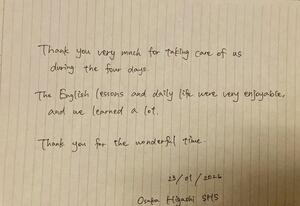 Thank you very much for taking care of us
during the four days.
The English lessons and daily life were very enjoyable,
and we learned a lot.
Thank you for the wonderful time.
23/01/2026
Osaka Higashi SHS